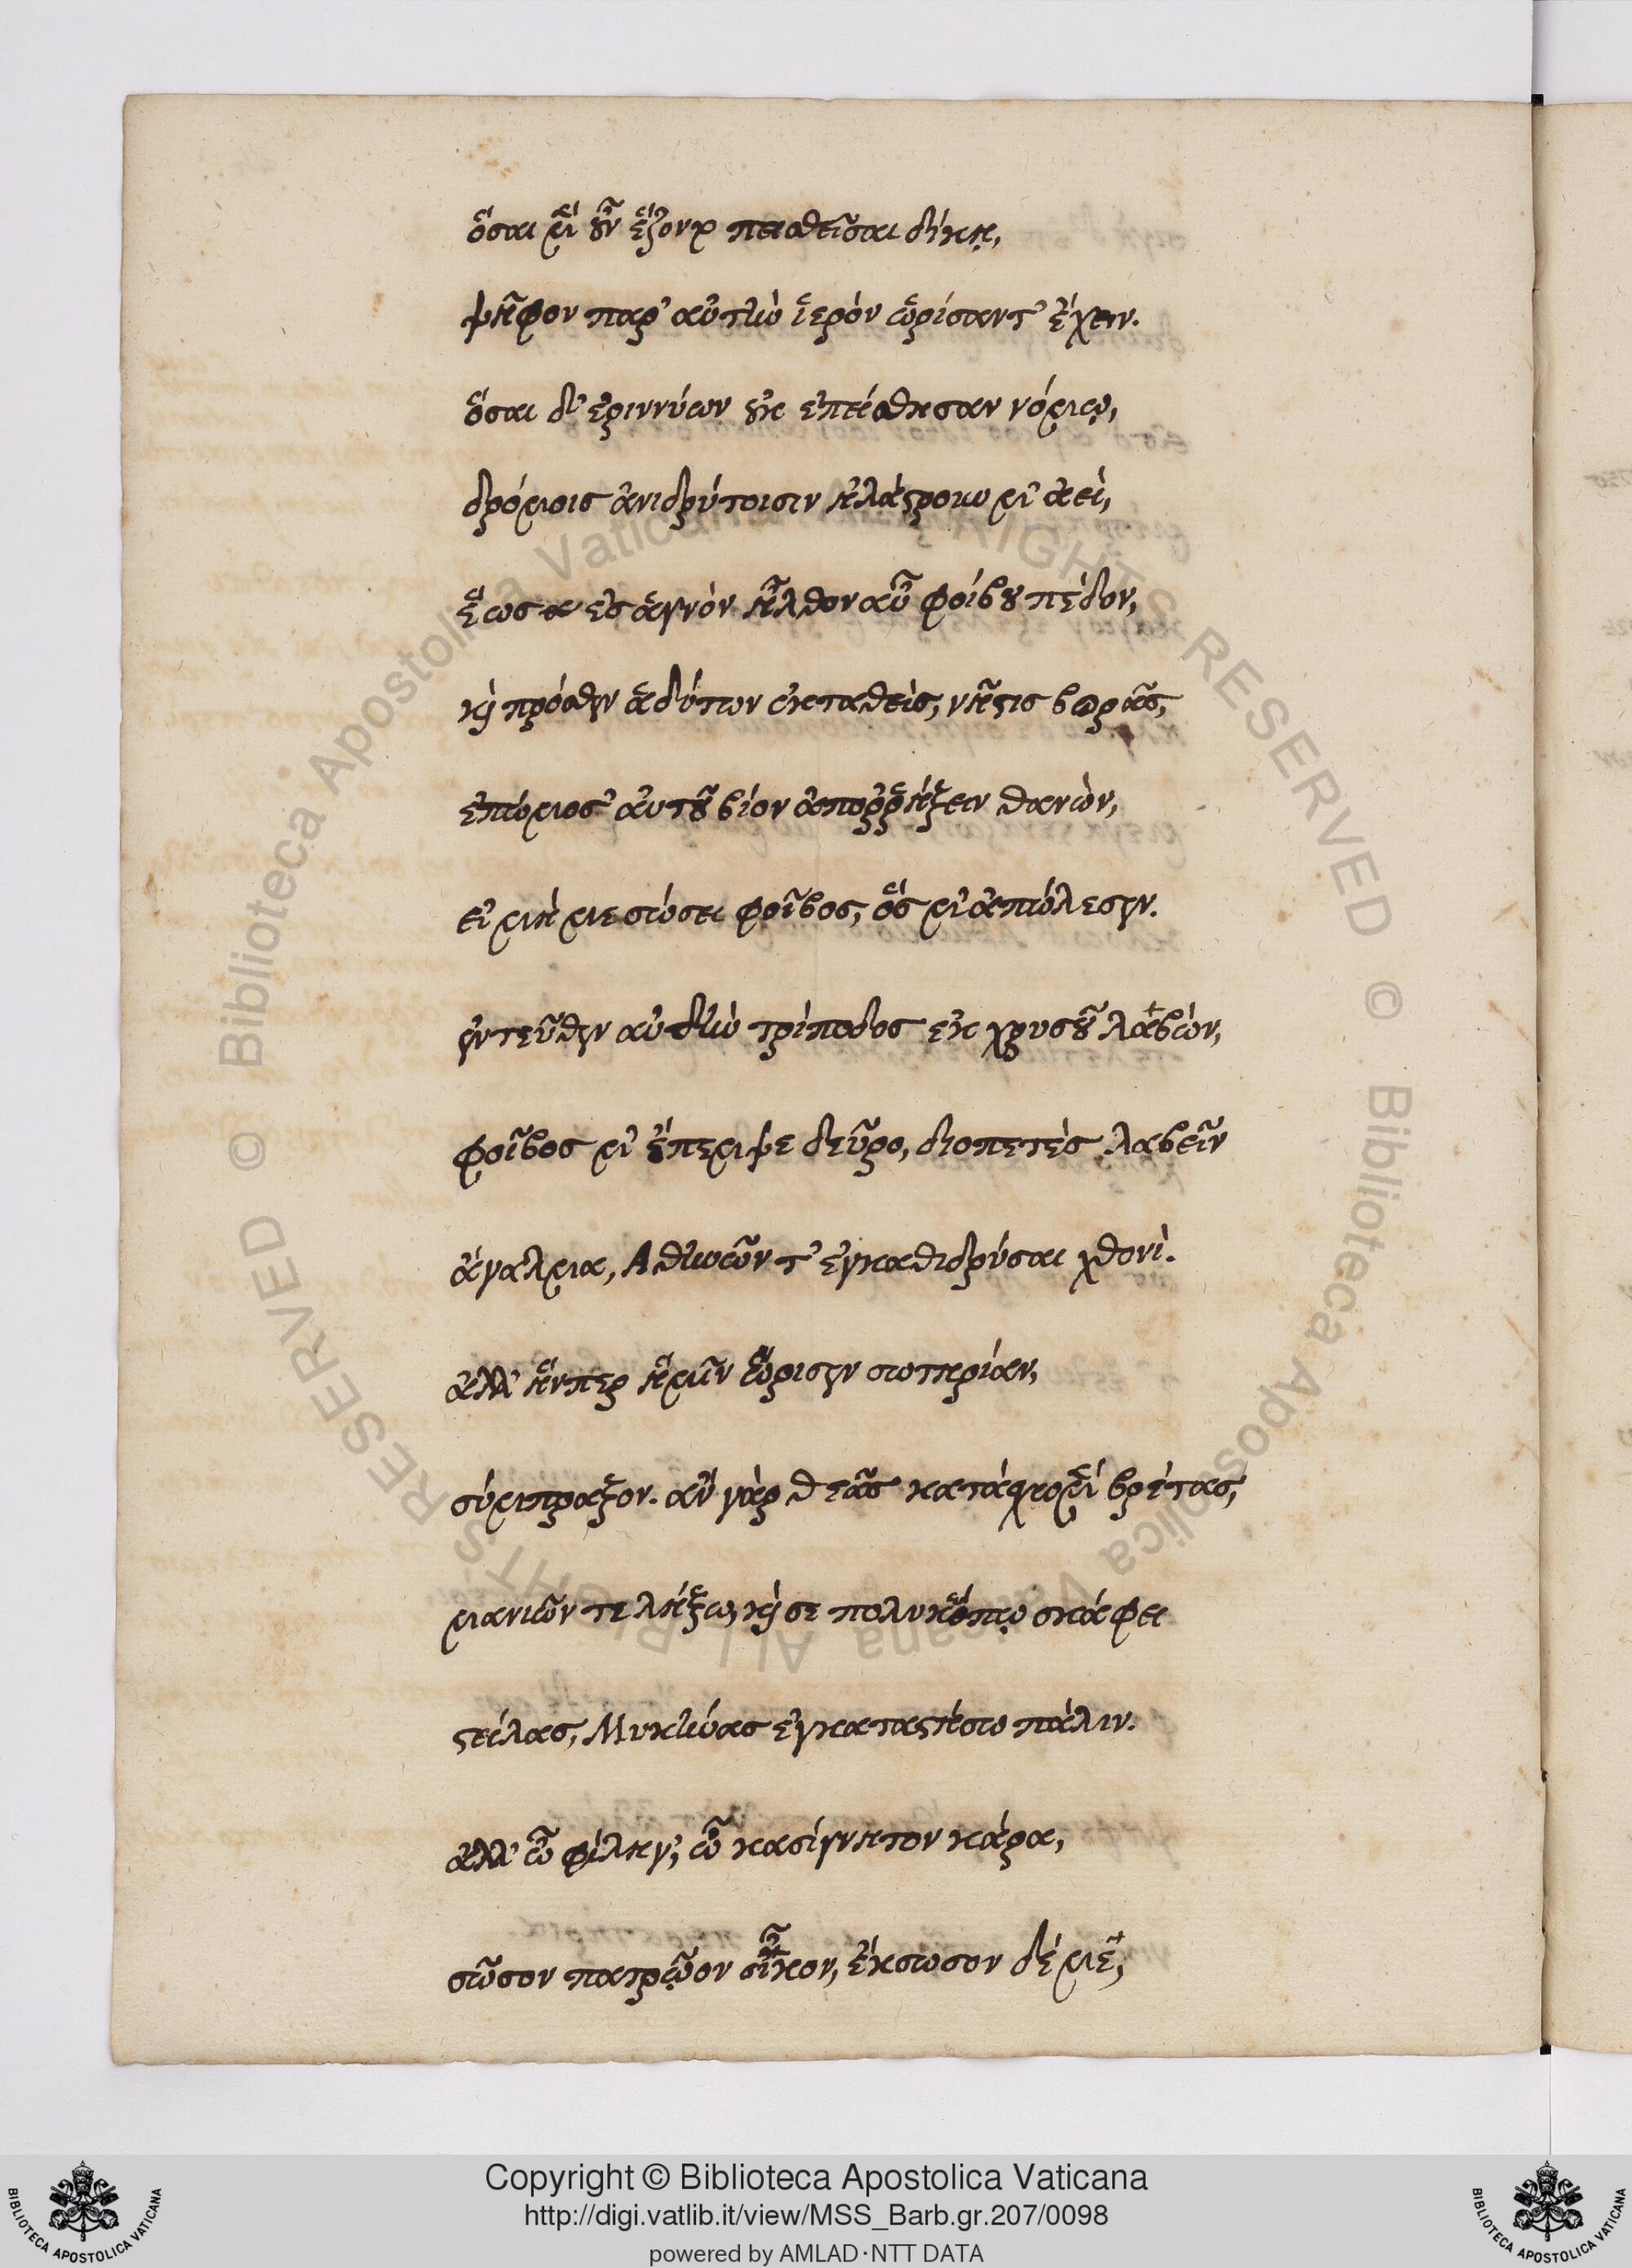 ὅσαι μὲν οὖν ἕζοντο πεισθεῖσαι δίκῃ,
ψῆφον παρ' αὐτὴν ἱερὸν ὡρίσαντ' ἔχειν.
ὅσαι δ' ἐριννύων οὐκ ἐπείσθησαν νόμῳ,
δρόμοις ἀνιδρύτοισιν ἠλάστρουν μ' ἀεὶ,
ἕως ἐς ἁγνὸν ἦλθον αὖ φοίβου πέδον,
καὶ πρόσθεν ἀδύτων ἐκταθεὶς, νῆστις βορᾶς,
ἐπώμοσ' αὐτοῦ βίον ἀπορρήξειν θανὼν,
εἰ μή με σώσει φοῖβος, ὅς μ' ἀπώλεσεν.
ἐντεῦθεν αὐδὴν τρίποδος ἐκ χρυσοῦ λαβὼν,
φοῖβος μ' ἔπεμψε δεῦρο, διοπετὲς λαβεῖν
ἄγαλμα, Ἀθηνῶν τ' ἐγκαθιδρύσαι χθονὶ.
ἀλλ' ἥνπερ ἡμῖν ὥρισεν σωτηρίαν,
σύμπραξον. ἂν γὰρ θεᾶς κατάσχωμεν βρέτας,
μανιῶν τε λήξω, καὶ σε πολυκώπῳ σκάφει
στείλας, Μυκήναις ἐγκαταστήσω πάλιν.
ἀλλ' ὦ φίλη γ', ὦ κασίγνητον κάρα,
σῶσον πατρῷον οἶκον, ἔκσωσον δέ με,
Copyright © Biblioteca Apostolica Vaticana
http://digi.vatlib.it/view/MSS_Barb.gr.207/0098
powered by AMLAD·NTT DATA